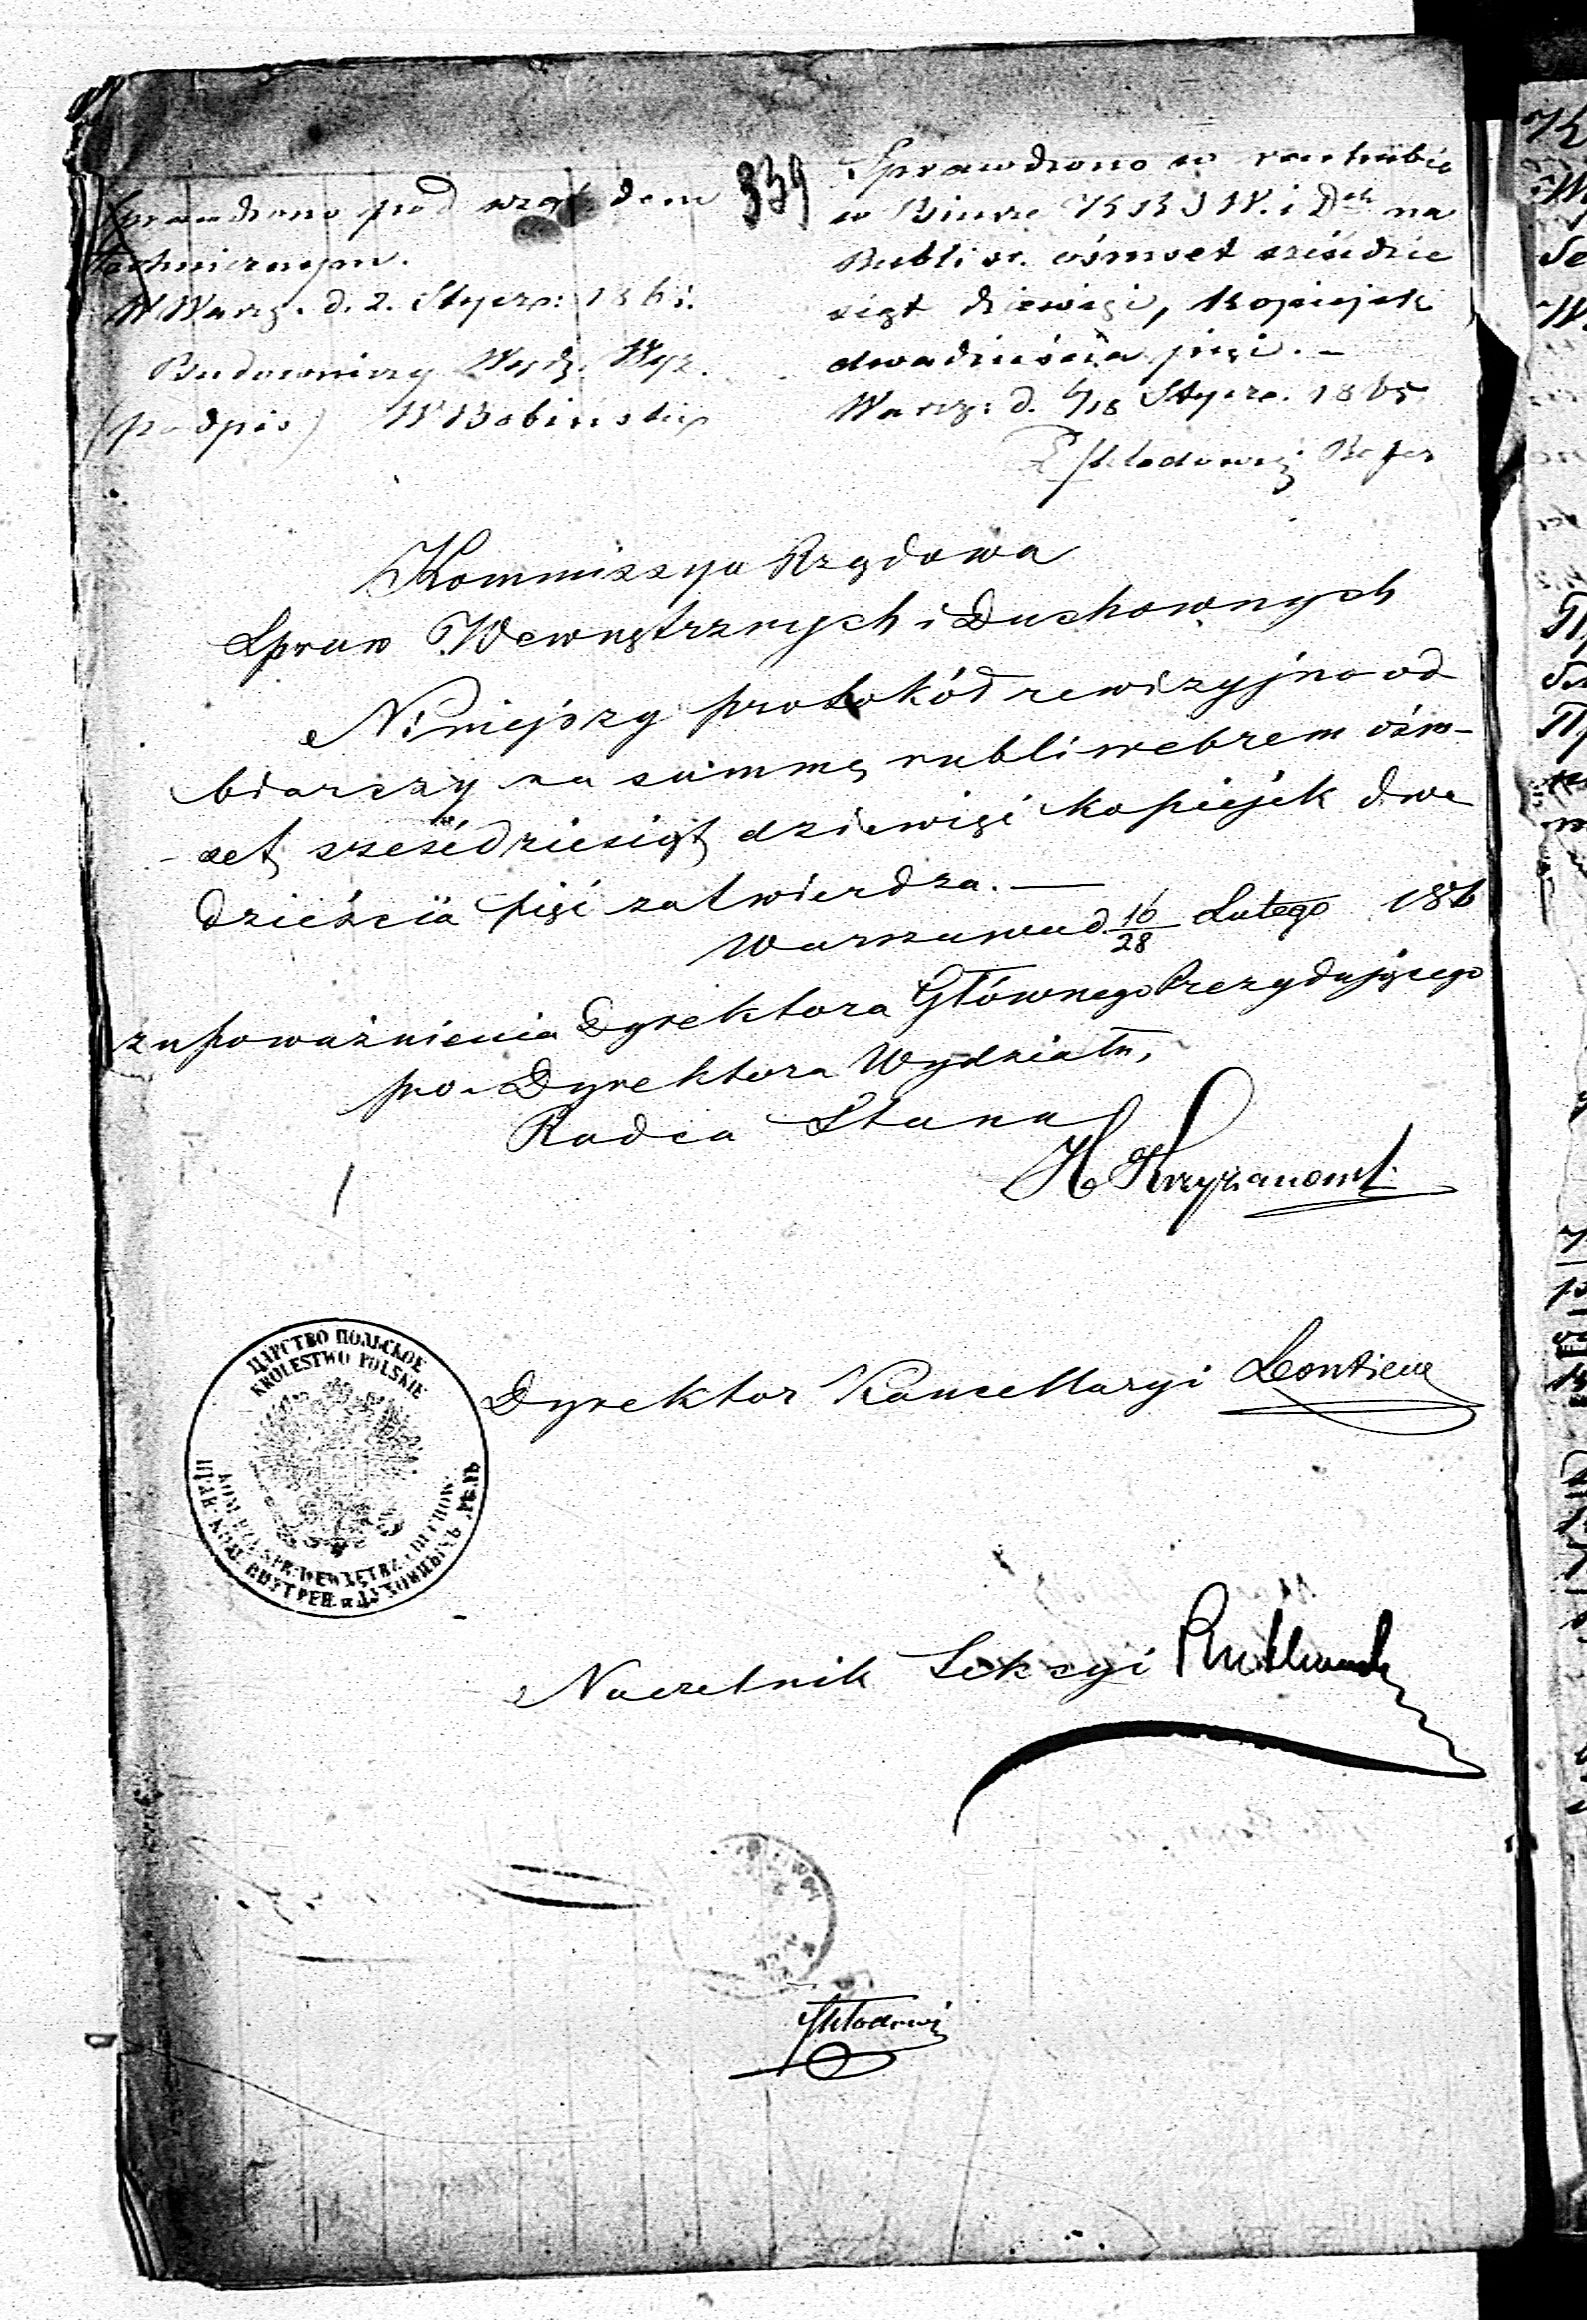 339
Sprawdzono pod względem
technicznym.
W Warsz. d. 2. Stycz: 186
Budowniczy Wydz. Wyz.
(podpis) W Bobiński
Sprawdzono w rachubie
w Biurze K R S W. i Duch na
Rubli sr. ośmset sześćdzie
siąt dziewięć, kopiejek
dwadzieścia pięć. —
Warsz: d. 6/18 Stycz. 1865
Skłodowski
Kommissya Rządowa
Spraw Wewnętrznych i Duchownych
Niniejszy protokół rewizyjno od
biorczy na summę rubli srebrem ośm-
set sześćdziesiąt dziewięć kopiejek dwa
dzieścia pięć zatwierdza. —
Warszawa d. 16/28 Lutego 186
z upoważnienia Dyrektora Głównego Prezydującego
p.o. Dyrektora Wydziału,
Radca Stanu
H Krzyżanowski
ЦАРСТВО ПОЛЬСКОЕ
KRÓLESTWO POLSKIE
KOM. RZĄ. SPR. WEWNĘTRZ. i DUCHOW.
ПРАВ. КОМ. ВНУТРЕН. и ДУХОВНЫХЪ ДѢЛЪ
Dyrektor Kancellaryi Leontiew
Naczelnik Sekcyi
Skłodowski